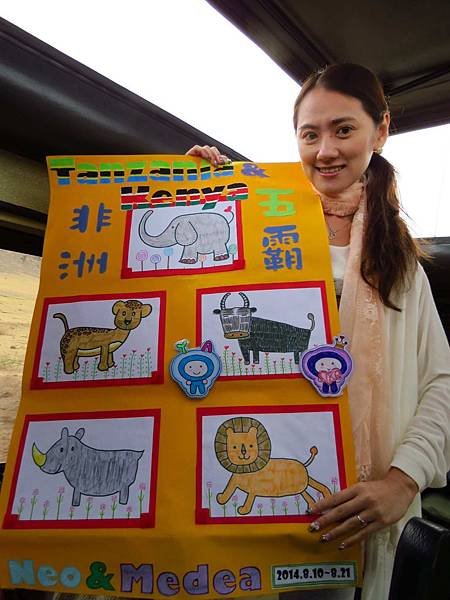 Tanzania &
Kenya
非洲
五霸
Neo & Medea
2014.8.10~8.21